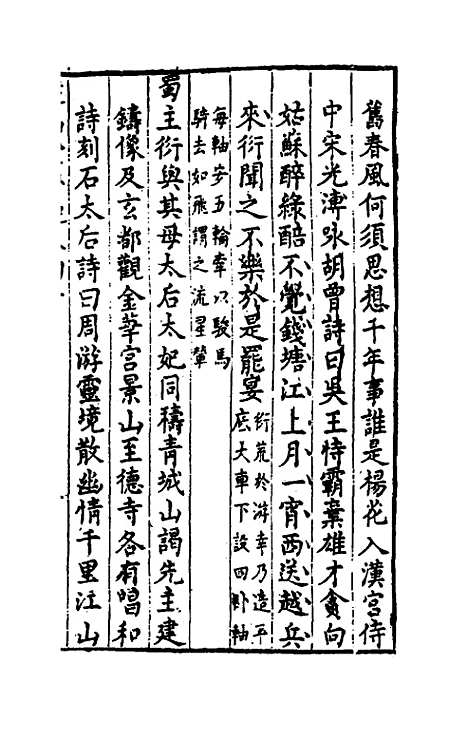 舊春風何須思想千年事誰是楊花入漢宮侍
中宋光溥咏胡曾詩曰吳王恃霸棄雄才貪向
姑蘇醉綠醅不覺錢塘江上月一宵西送越兵
來衍聞之不樂於是罷宴
衍荒於游幸乃造平
底大車下設四卧軸
每軸安五輪牽以駿馬
騎去如飛謂之流星輦
蜀主衍與其母太后太妃同禱青城山謁先主建
鑄像及玄都觀金華宮景山至德寺各有唱和
詩刻石太后詩曰周游靈境散幽情千里江山